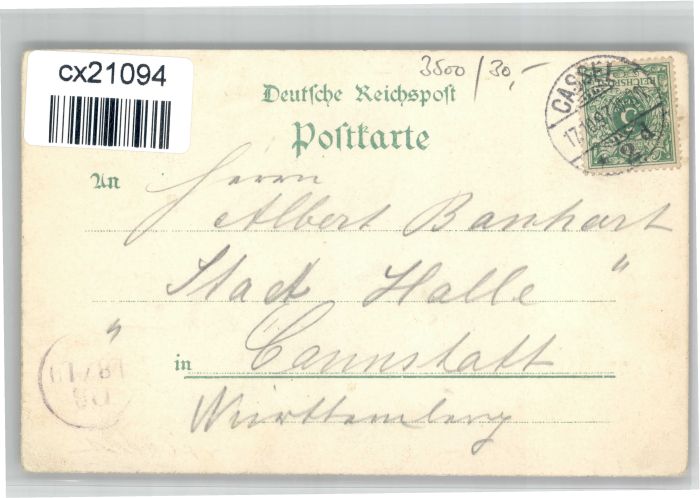 cx21094
3500/30,-
Deutsche Reichspost
Postkarte
CASSEL
An Herrn
Albert Banhart
"Stadt Halle"
in Cannstatt
Württemberg